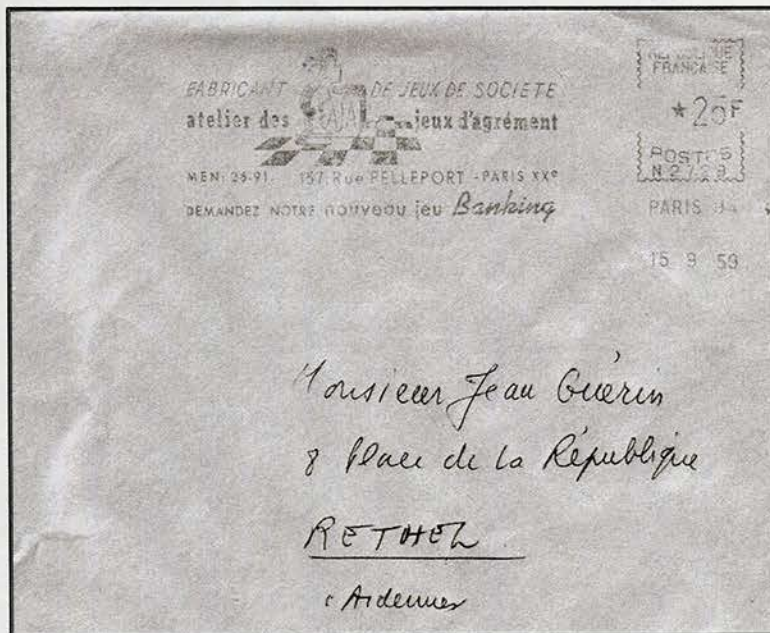 FABRICANT DE JEUX DE SOCIETE
atelier des AJA jeux d'agrément
MEN: 26-91. 157, Rue PELLEPORT - PARIS XXe
DEMANDEZ NOTRE nouveau jeu Banking
FRANÇAISE
★ 25 F
POSTES
PARIS
15 9 59
Monsieur Jean Guérin
8 Place de la République
RETHEL
Ardennes